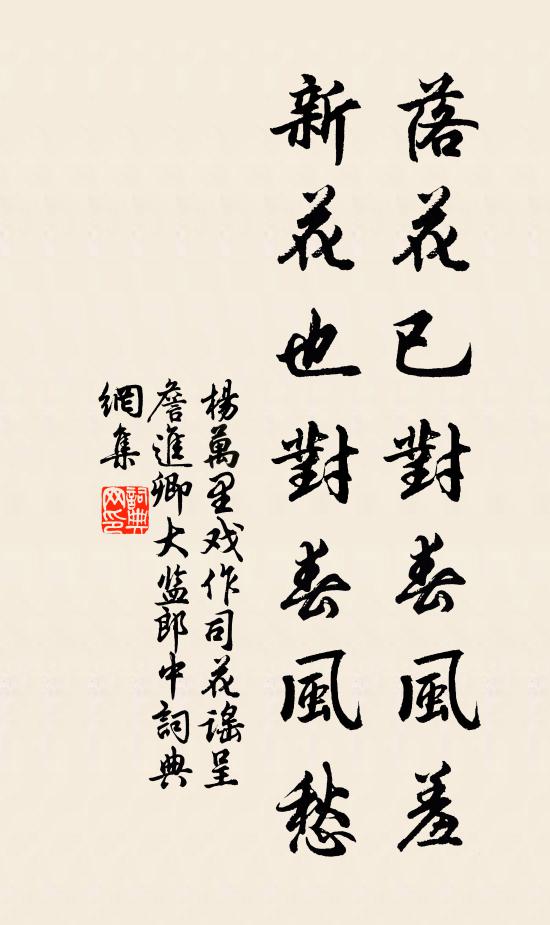 落花已對春風羞
新花也對春風愁
楊萬里戏作司花謠呈
詹進卿大监郎中詞典
網集
詞典網印